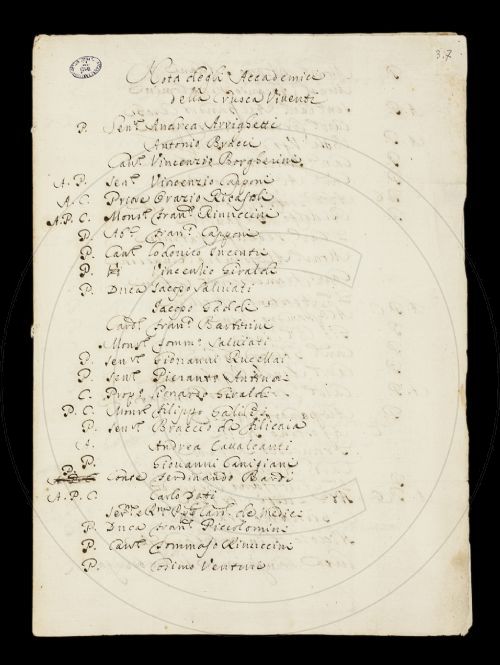 3.7
Nota degli Accademici
della Crusca Viventi
P. Sen.r Andrea Arrighetti
Antonio Bracci
Cav.r Vincenzio Borgherini
A. P. Sen.r Vincenzio Capponi
A. C. Priore Orazio Ricasoli
A. P. C. Mons.r Fran.o Rinuccini
P. Ab.e Fran.o Capponi
P. Cav.r Lodovico Incontri
P. Vincenzio Giraldi
P. Duca Jacopo Salviati
Jacopo Gaddi
Card. Fran.o Barberini
Mons.r Tomm.o Salviati
P. Sen.r Giovanni Rucellai
P. Sen.r Pierant.o
C. Prop.o Lionardo Giraldi
P. C. Mons.r Filippo Galilei
P. Sen.r Braccio da Filicaia
A. Andrea Cavalcanti
P. Giovanni Canigiani
P. Conte Ferdinando Bardi
A. P. C. Carlo Dati
Ser.mo R.mo Card. de Medici
P. Duca Fran.o Piccolomini
P. Cav.r Tommaso Rinuccini
P. Cosimo Venturi